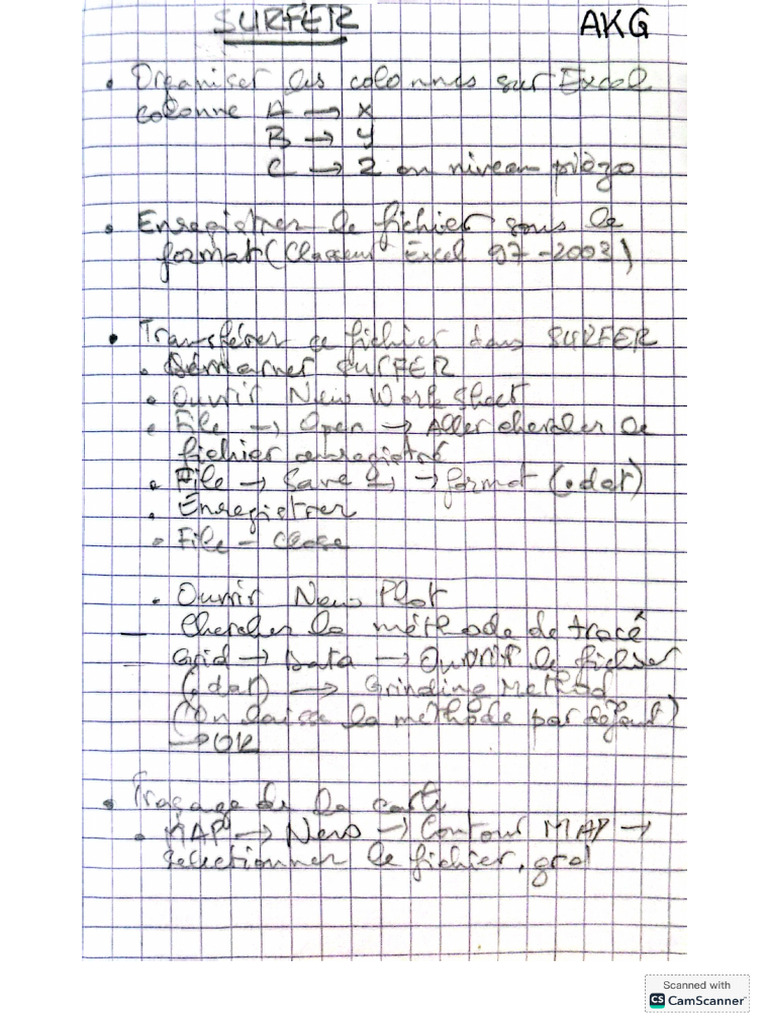 SURFER AKG
• Organiser les colonnes sur Excel
colonne A → x
B → y
C → Z ou niveau piézo
• Enregistrer le fichier sous le
format (Classeur Excel 97-2003)
• Transférer ce fichier dans SURFER
• Démarrer SURFER
• Ouvrir New Work Sheet
• File → Open → Aller chercher le
fichier enregistré
• File → Save → format (.dat)
• Enregistrer
• File - Close
• Ouvrir New Plot
— Chercher la méthode de tracé
Grid → Data → Ouvrir le fichier
(.dat) → Grinding Method
(On laisse la méthode par défaut)
→ OK
• Traçage de la carte
• MAP → New → Contour MAP →
selectionner le fichier.grd
Scanned with
CS CamScanner